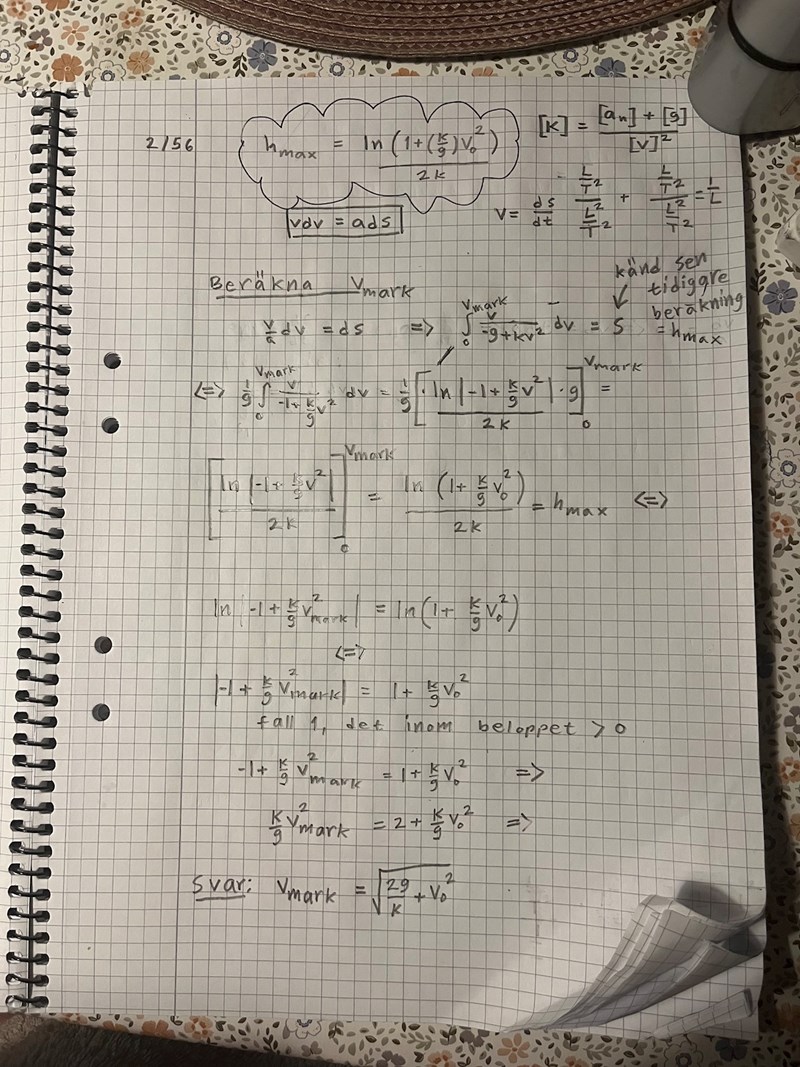 2/56
h_max = ln(1+(k/g)v₀²) / 2k
[K] = ([a_n] + [g]) / [v]²
v = ds/dt
(L/T²)/(L²/T²) + (L/T²)/(L²/T²) = 1/L
vdv = ads
Beräkna v_mark
känd sen
tidiggre
beräkning
= h_max
v/a dv = ds => ∫₀^v_mark v/(-g+kv²) dv = S
<=> 1/g ∫₀^v_mark v/(-1+k/g v²) dv = 1/g [ln|-1+k/g v²|·g / 2k]₀^v_mark =
[ln|-1+k/g v²| / 2k]₀^v_mark = ln(1+k/g v₀²) / 2k = h_max <=>
ln|-1+k/g v²_mark| = ln(1+k/g v₀²)
<=>
|-1+k/g v²_mark| = 1+k/g v₀²
fall 1, det inom beloppet > 0
-1+k/g v²_mark = 1+k/g v₀² =>
k/g v²_mark = 2+k/g v₀² =>
Svar: v_mark = √(2g/k + v₀²)